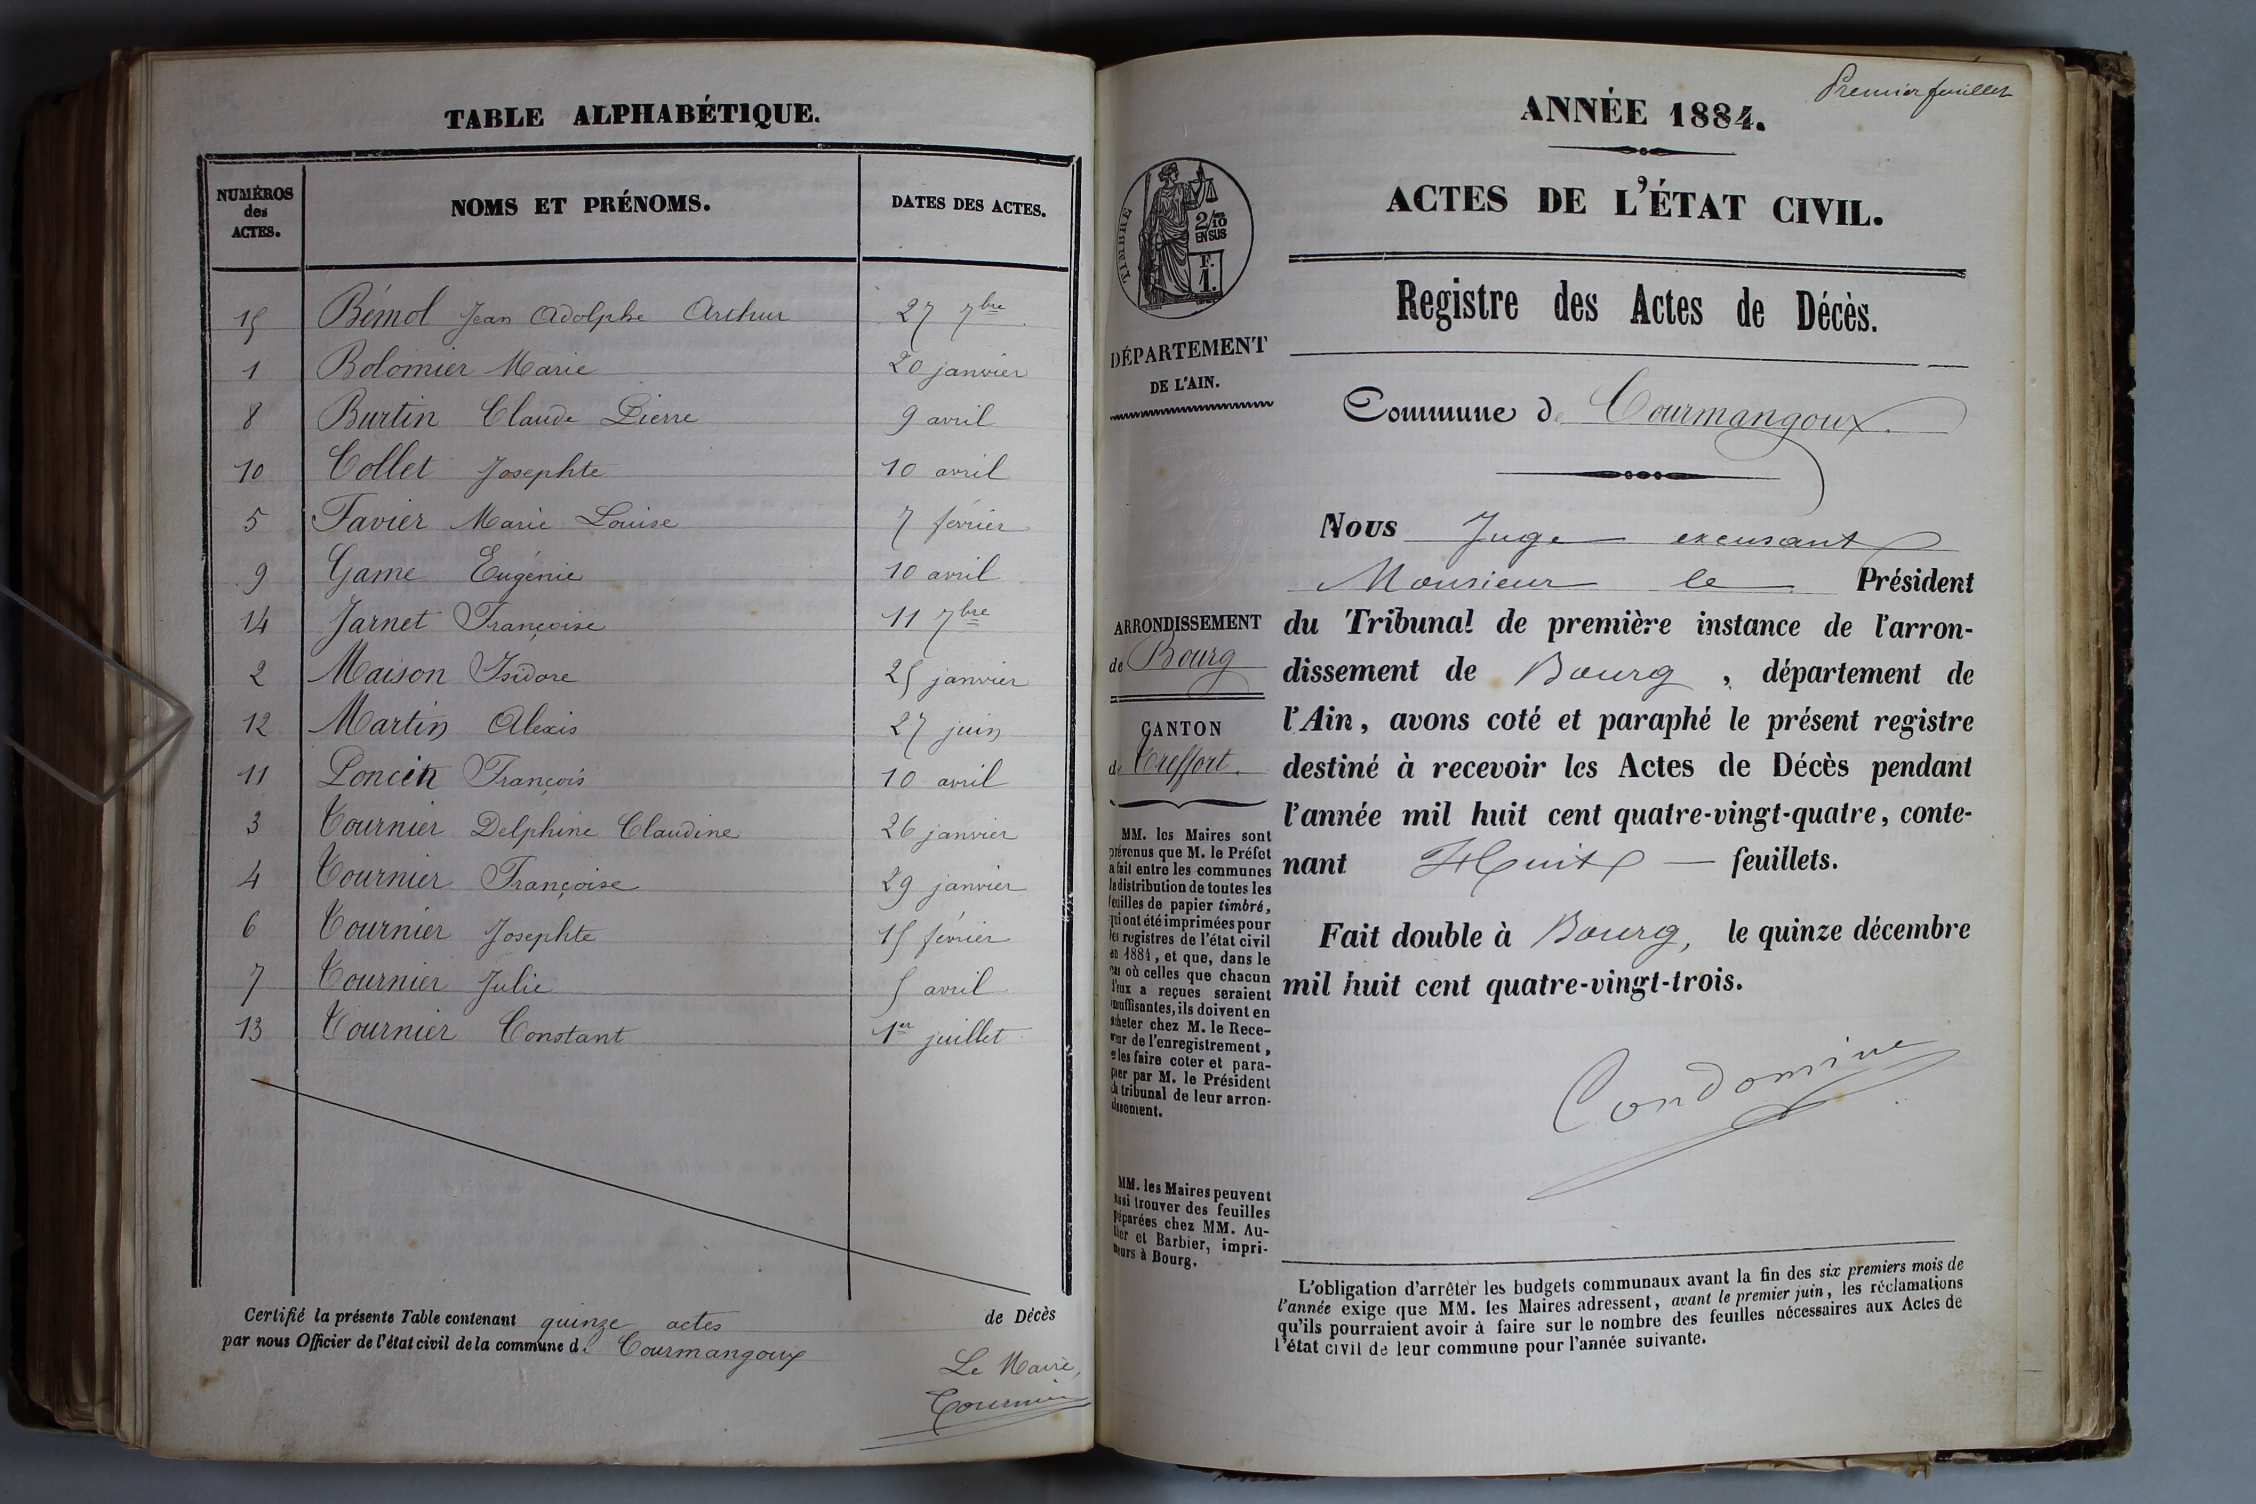 TABLE ALPHABÉTIQUE.
NUMÉROS des ACTES. NOMS ET PRÉNOMS. DATES DES ACTES.
15 Bémol Jean Adolphe Arthur 27 7bre
1 Bolomier Marie 20 janvier
8 Burtin Claude Pierre 9 avril
10 Collet Josephte 10 avril
5 Favier Marie Louise 7 février
9 Game Eugénie 10 avril
14 Jarnet Françoise 11 7bre
2 Maison Isidore 25 janvier
12 Martin Alexis 27 juin
11 Poncin François 10 avril
3 Tournier Delphine Claudine 26 janvier
4 Tournier Françoise 29 janvier
6 Tournier Josephte 15 février
7 Tournier Julie 5 avril
13 Tournier Constant 1er juillet
Certifié la présente Table contenant quinze actes de Décès
par nous Officier de l'état civil de la commune d. Courmangoux
Le Maire,
Tournier
Premier feuillet
ANNÉE 1884.
ACTES DE L'ÉTAT CIVIL.
TIMBRE
2/10
EN SUS
F.
1.
DÉPARTEMENT
DE L'AIN.
ARRONDISSEMENT
de Bourg
CANTON
de Treffort.
MM. les Maires sont
prévenus que M. le Préfet
a fait entre les communes
la distribution de toutes les
feuilles de papier timbré,
qui ont été imprimées pour
les registres de l'état civil
en 1884, et que, dans le
cas où celles que chacun
d'eux a reçues seraient
insuffisantes, ils doivent en
acheter chez M. le Rece-
veur de l'enregistrement,
et les faire coter et para-
pher par M. le Président
du tribunal de leur arron-
dissement.
MM. les Maires peuvent
aussi trouver des feuilles
préparées chez MM. Au-
thier et Barbier, impri-
meurs à Bourg.
Registre des Actes de Décès.
Commune de Courmangoux.
Nous Juge excusant
Monsieur le Président
du Tribunal de première instance de l'arron-
dissement de Bourg, département de
l'Ain, avons coté et paraphé le présent registre
destiné à recevoir les Actes de Décès pendant
l'année mil huit cent quatre-vingt-quatre, conte-
nant Huit feuillets.
Fait double à Bourg, le quinze décembre
mil huit cent quatre-vingt-trois.
Condomine
L'obligation d'arrêter les budgets communaux avant la fin des six premiers mois de
l'année exige que MM. les Maires adressent, avant le premier juin, les réclamations
qu'ils pourraient avoir à faire sur le nombre des feuilles nécessaires aux Actes de
l'état civil de leur commune pour l'année suivante.